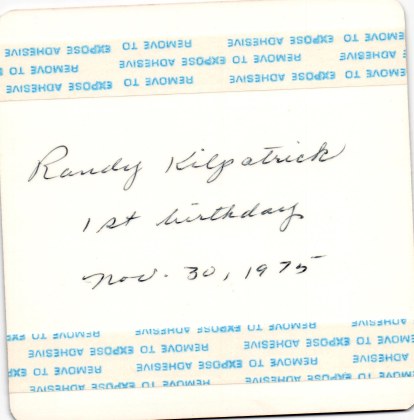 REMOVE TO EXPOSE ADHESIVE REMOVE TO EXPOSE ADHESIVE
REMOVE TO EXPOSE ADHESIVE REMOVE TO EXPOSE ADHESIVE
REMOVE TO EXPOSE ADHESIVE REMOVE TO EXPOSE ADHESIVE
Randy Kilpatrick
1st birthday
Nov. 30, 1975
REMOVE TO EXPOSE ADHESIVE REMOVE TO EXPOSE ADHESIVE
REMOVE TO EXPOSE ADHESIVE REMOVE TO EXPOSE ADHESIVE
REMOVE TO EXPOSE ADHESIVE REMOVE TO EXPOSE ADHESIVE
REMOVE TO EXPOSE ADHESIVE REMOVE TO EXPOSE ADHESIVE